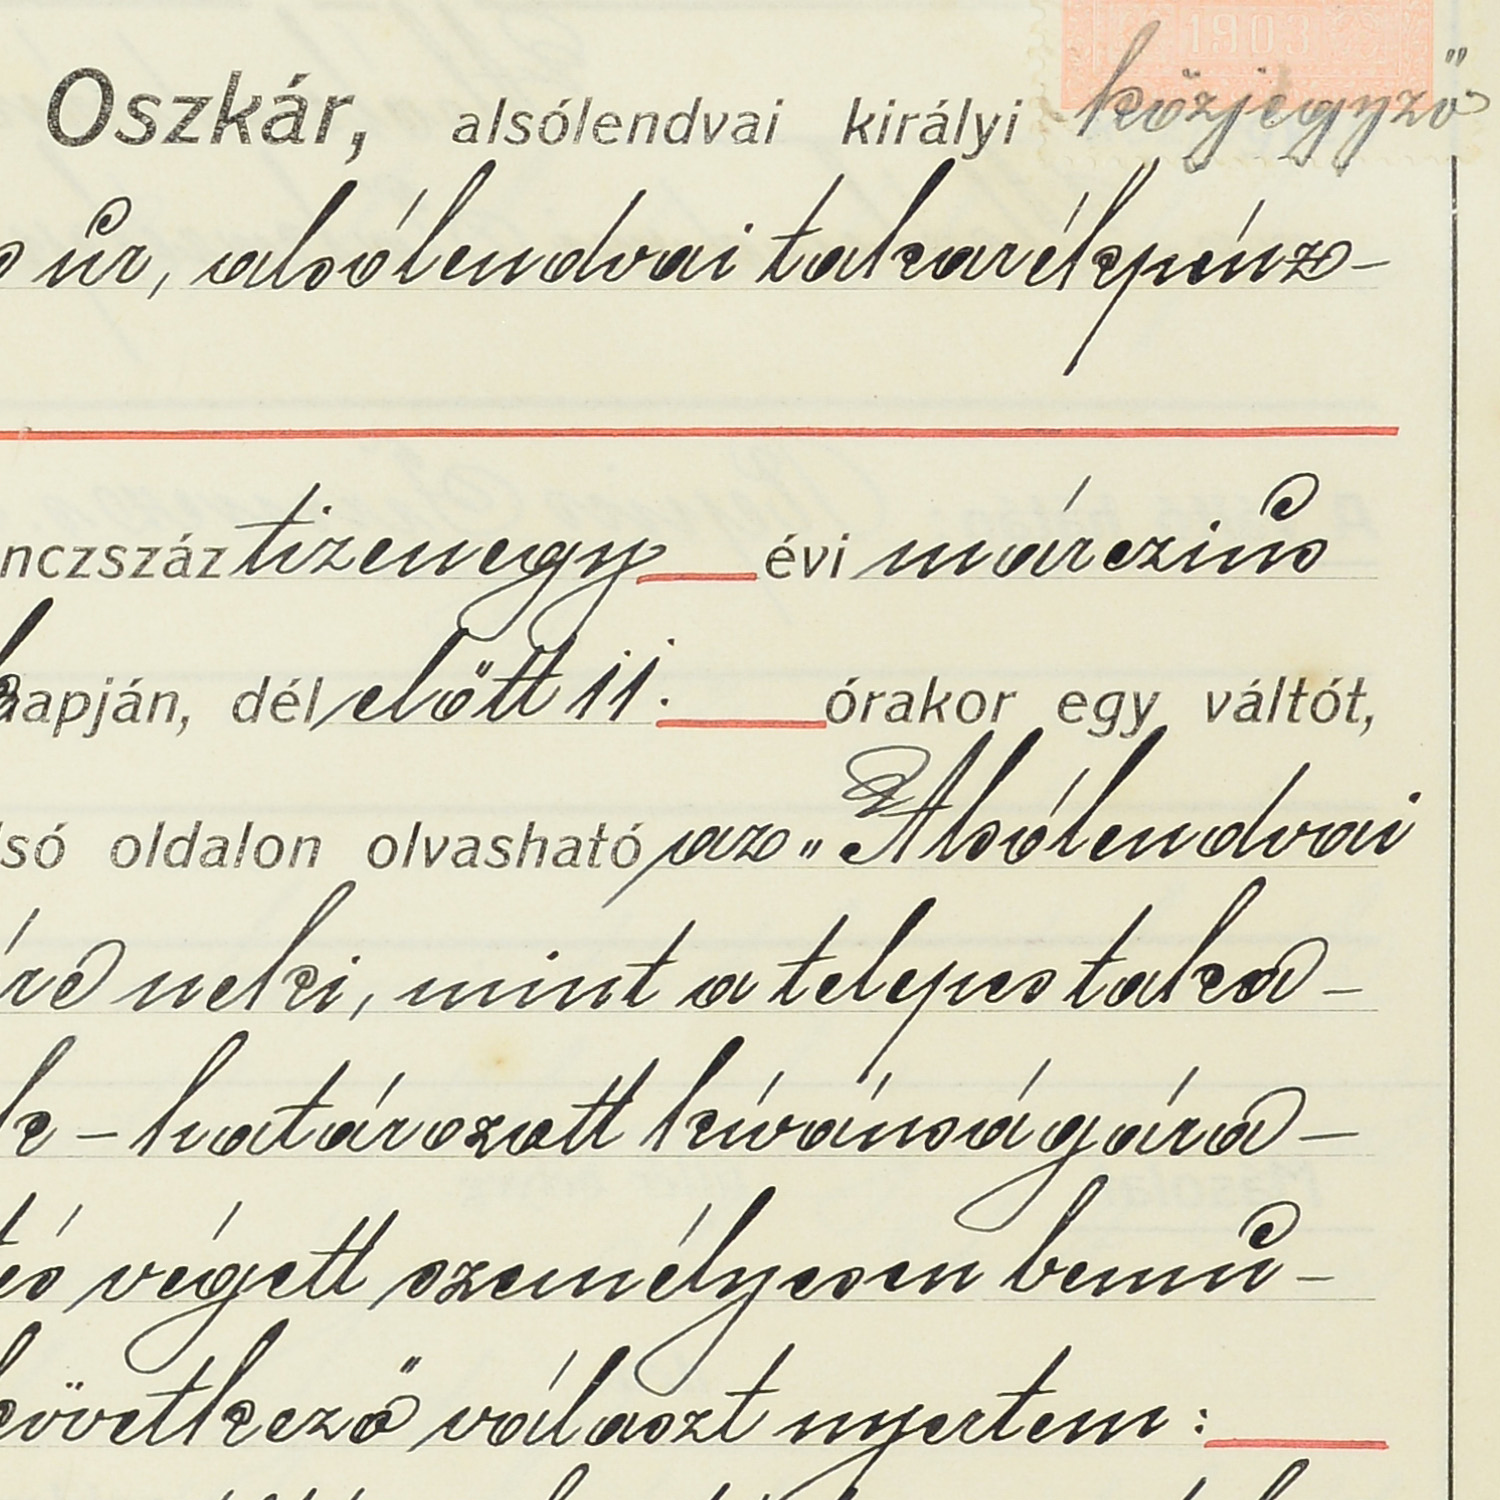 1903
Oszkár, alsólendvai királyi közjegyző
úr, alsólendvai takarékpénz-
nczszáz tizenegy évi márczius
napján, dél előtt 11. órakor egy váltót,
lsó oldalon olvasható az „Alsólendvai
neki, mint a telepes taka-
k - határozott kívánságára -
és végett személyesen bemu-
következő választ nyertem: